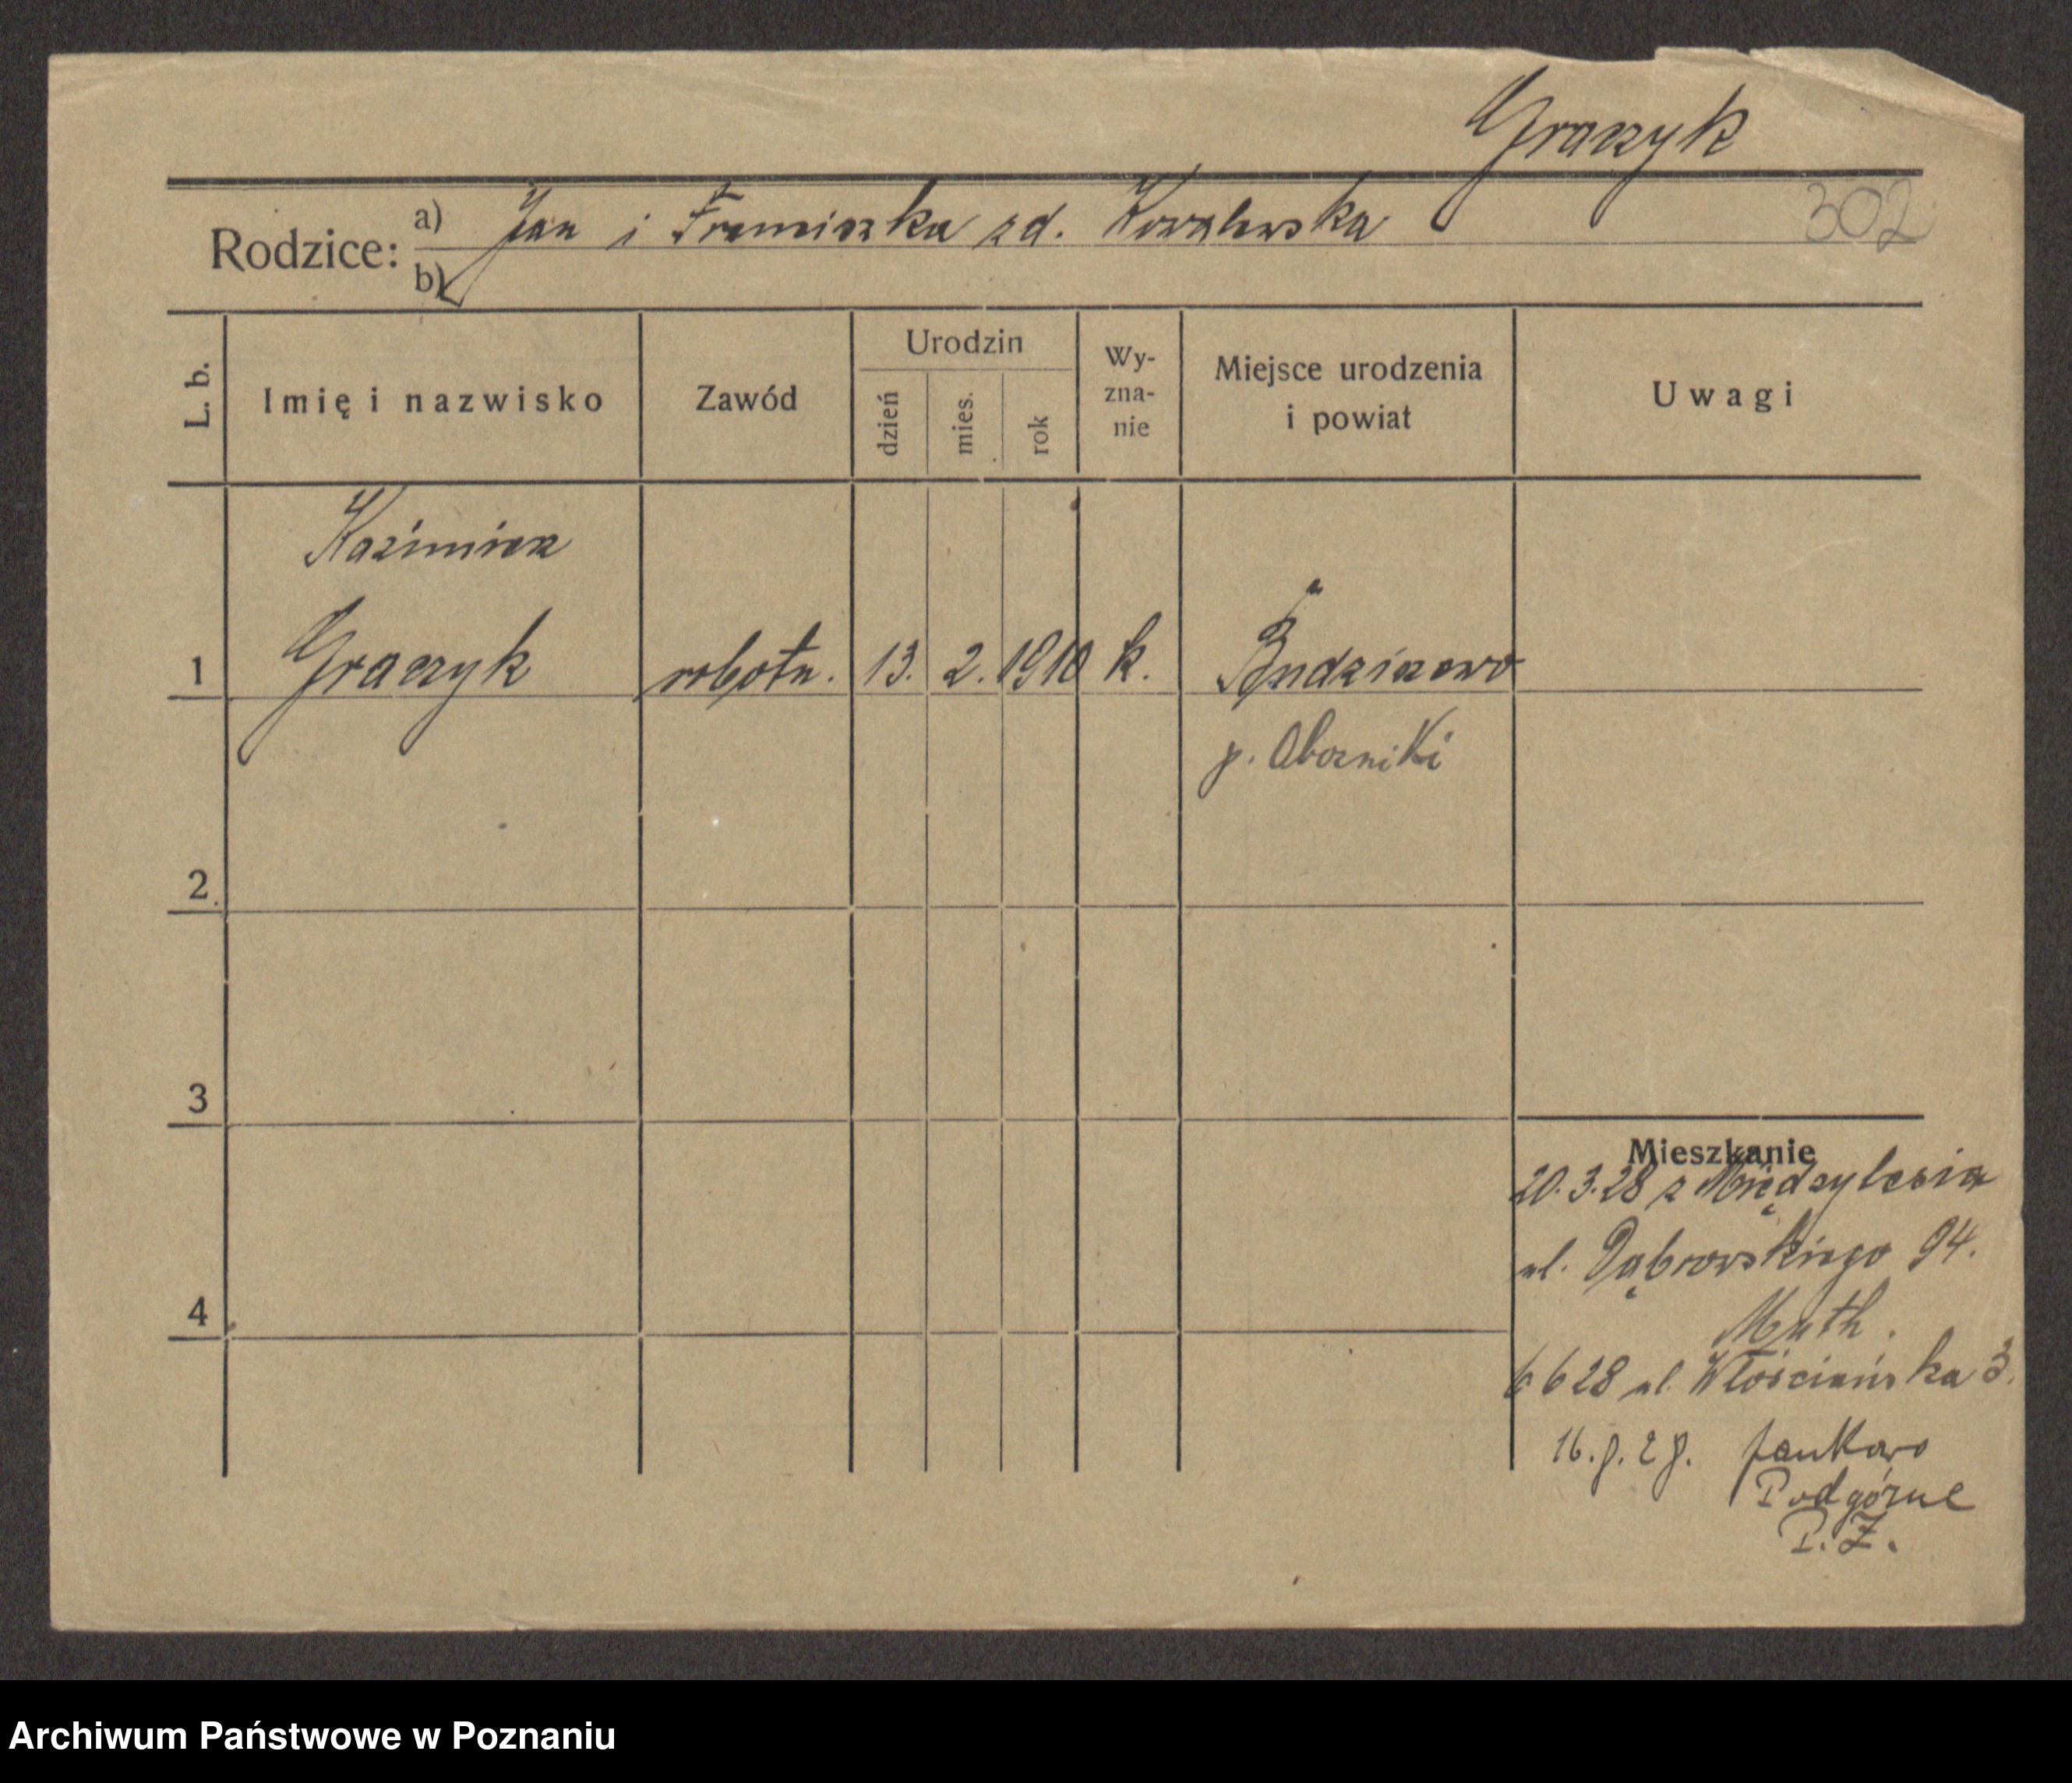 Graczyk
302
Rodzice: a) Jan i Franciszka zd. Kowalewska
b)
L. b. Imię i nazwisko Zawód Urodzin dzień mies. rok Wy-zna-nie Miejsce urodzenia i powiat Uwagi
Kazimierz
1 Graczyk robotn. 13. 2. 1910 k. Budziszewo
p. Oborniki
2
3
4
Mieszkanie
20.3.28 z Międzylesia
ul. Dąbrowskiego 94.
Muth.
6 6 28 ul. Włościańska 3.
16. 8. 28. Jankowo
Podgórne
P. Z.
Archiwum Państwowe w Poznaniu